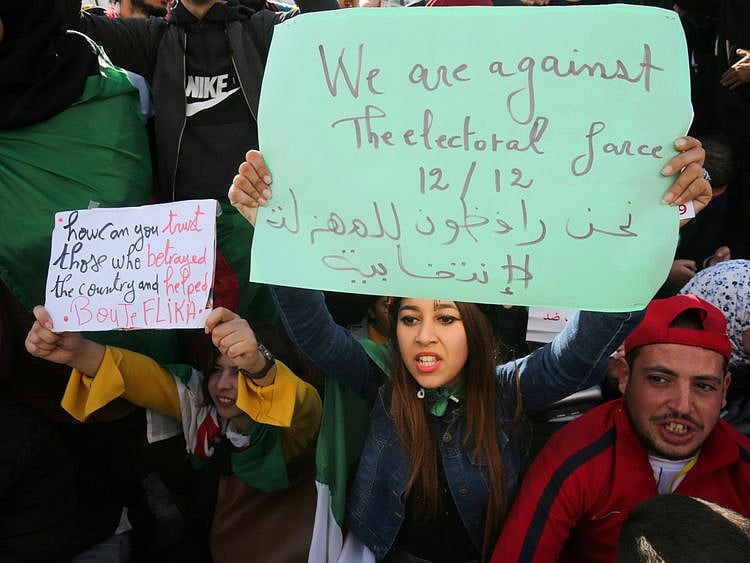 NIKE
We are against
The electoral farce
12/12
نحن رافظون للمهزلة
الإنتخابية
9
how can you trust
those who betrayed
the country and helped
BouTeFLiKA
ضد